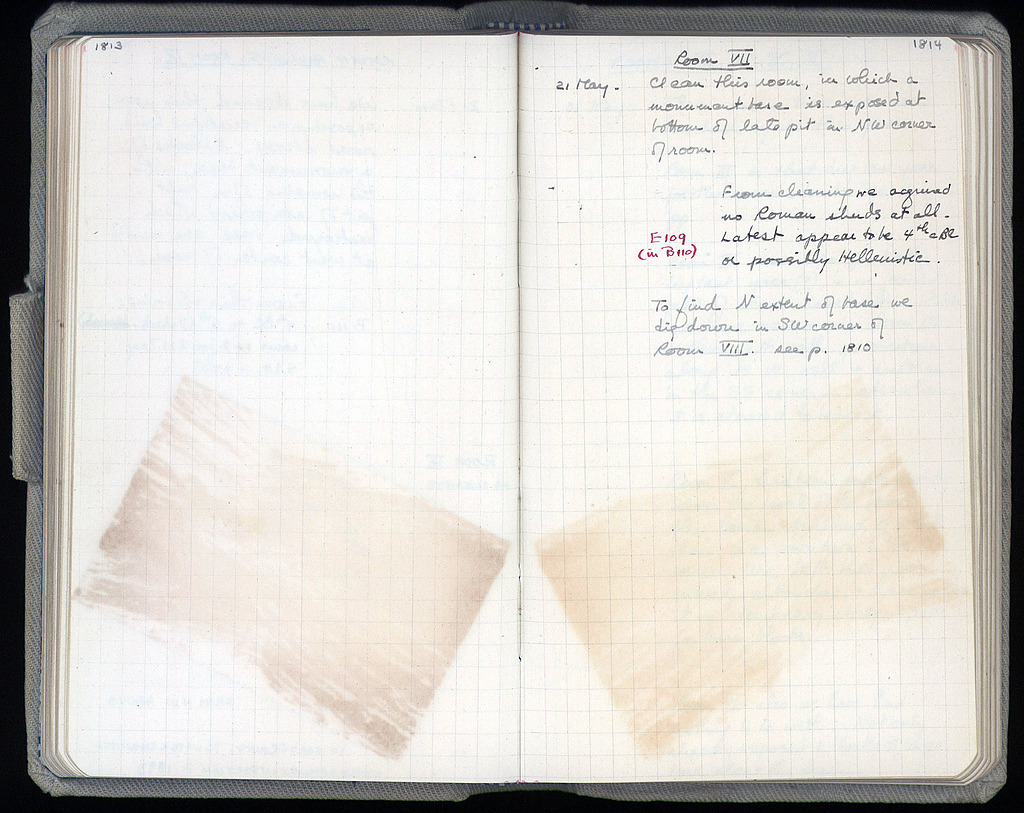 1813
1814
Room VII
21 May. Clean this room, in which a
monument base is exposed at
bottom of late pit in NW corner
of room.
From cleaning we acquired
no Roman sherds at all.
Latest appear to be 4th c BC
or possibly Hellenistic.
E109
(in B110)
To find N extent of base we
dig down in SW corner of
Room VIII. see p. 1810